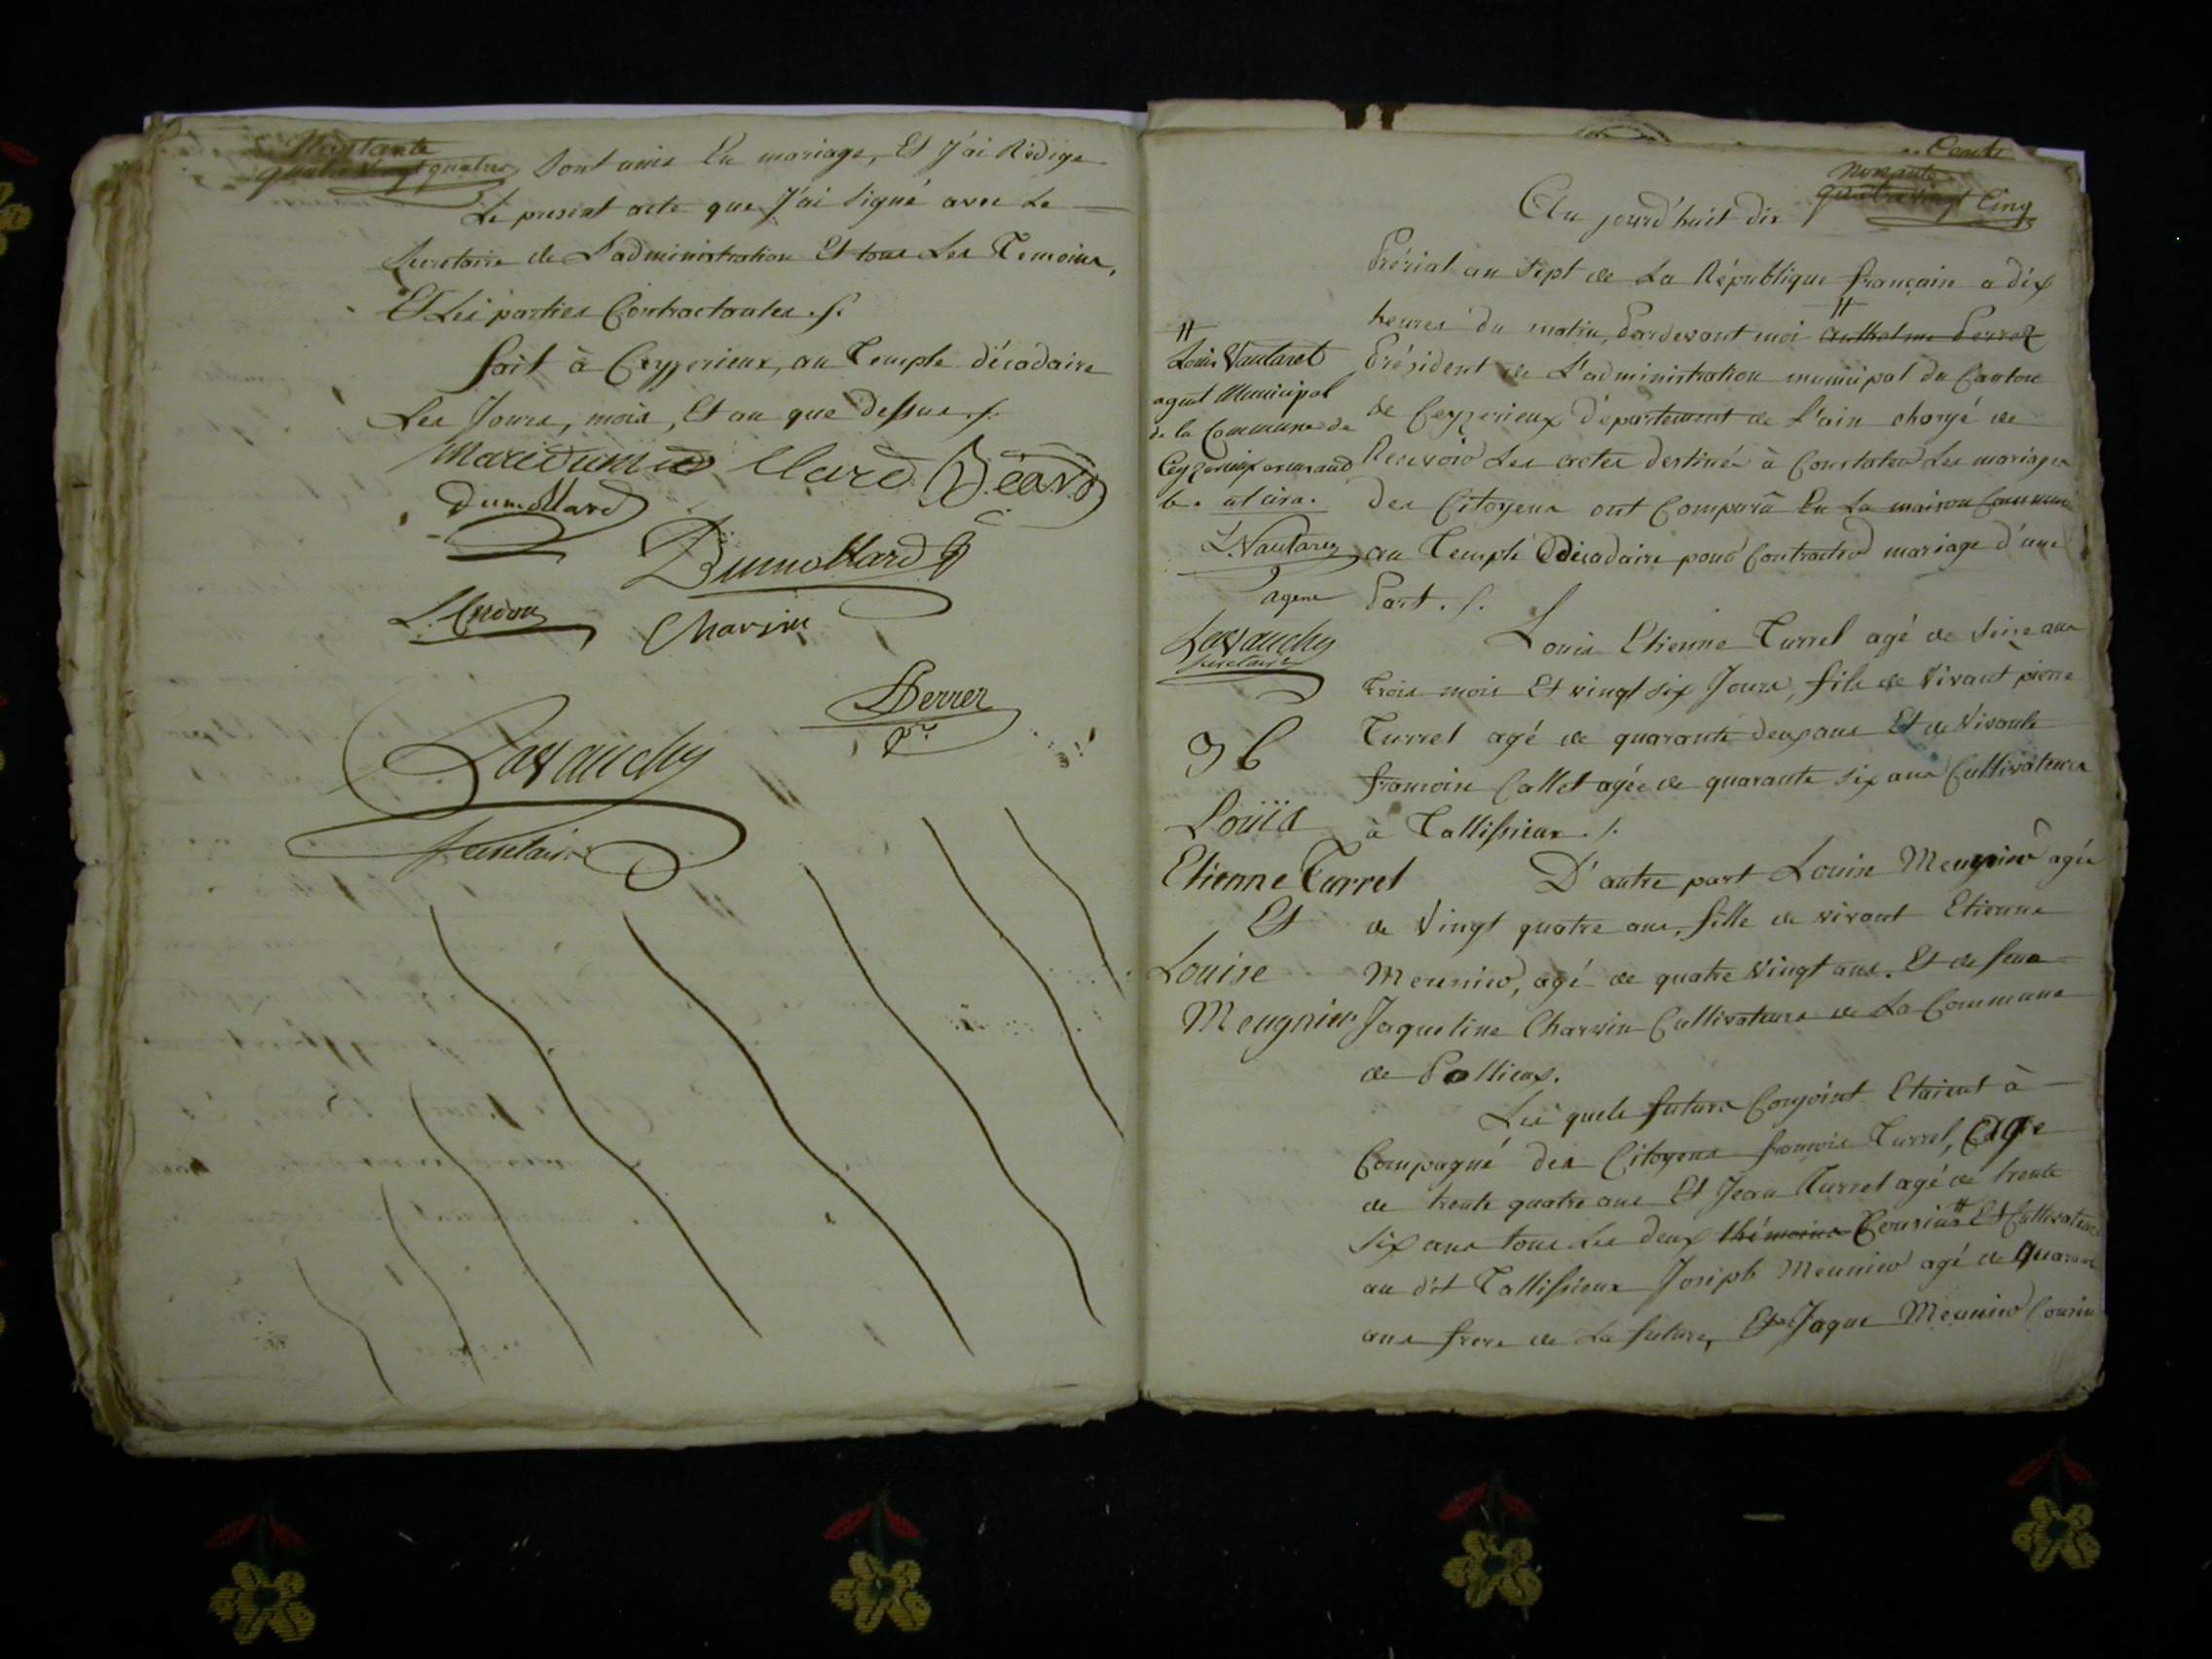 Nonante
quatre vingt quatre
Sont unis En mariage, Et J'ai Rédigé
Le present acte que J'ai Signé avec Le
Secretaire de L'administration Et tous Les Temoins,
Et Les parties Contractantes ./.
fait à Ceyzerieux, au Temple décadaire
Les Jours, mois, Et an que dessus ./.
Dumollard
Dumollard
Charvin
Perrer
pr.
Lavauchy
Secretaire
Nonante
quatre vingt Cinq
Au jourd'huit dix
Prérial an Sept de La République français a dix
heures du matin, Pardevant moi Anthelme Perrer #
Président de L'administration municipal du Canton
de Ceyzerieux département de L'ain chargé de
Recevoir Les actes destinés à Constater Les mariages
des Citoyens ont Comparû En La maison Commune
au Temple Décadaire pour Contracter mariage d'une
Part ./.
Louis Etienne Turrel agé de Seize ans
trois mois Et vingt six Jours, fils de Vivant pierre
Turrel agé de quarante deux ans Et de Vivante
francoise Callet agée de quarante six ans Cultivateurs
à Tallissieux ./.
D'autre part Louise Meugnier agée
de Vingt quatre ans, fille de vivant Etienne
Meunier, agé de quatre Vingt ans. Et de feue
Jaqueline Charvin Cultivateurs de La Commune
de Pollieux.
Les quels futurs Conjoint Etaient à
Compagné des Citoyens francois Turrel, Age
de trente quatre ans Et Jean Turrel agé de trente
six ans tous Les deux thémoins Cousins # Et Cultivateurs
au dit Tallissieux Joseph Meunier agé de quarante
ans frere de La future, Et Jaque Meunier Cousin
#
Louis Vautaret
agent Municipal
de la Commune de
L. Vautaret
agent
Lavauchy
secretaire
36
Louïs
Etienne Turrel
Et
Louise
Meugnier